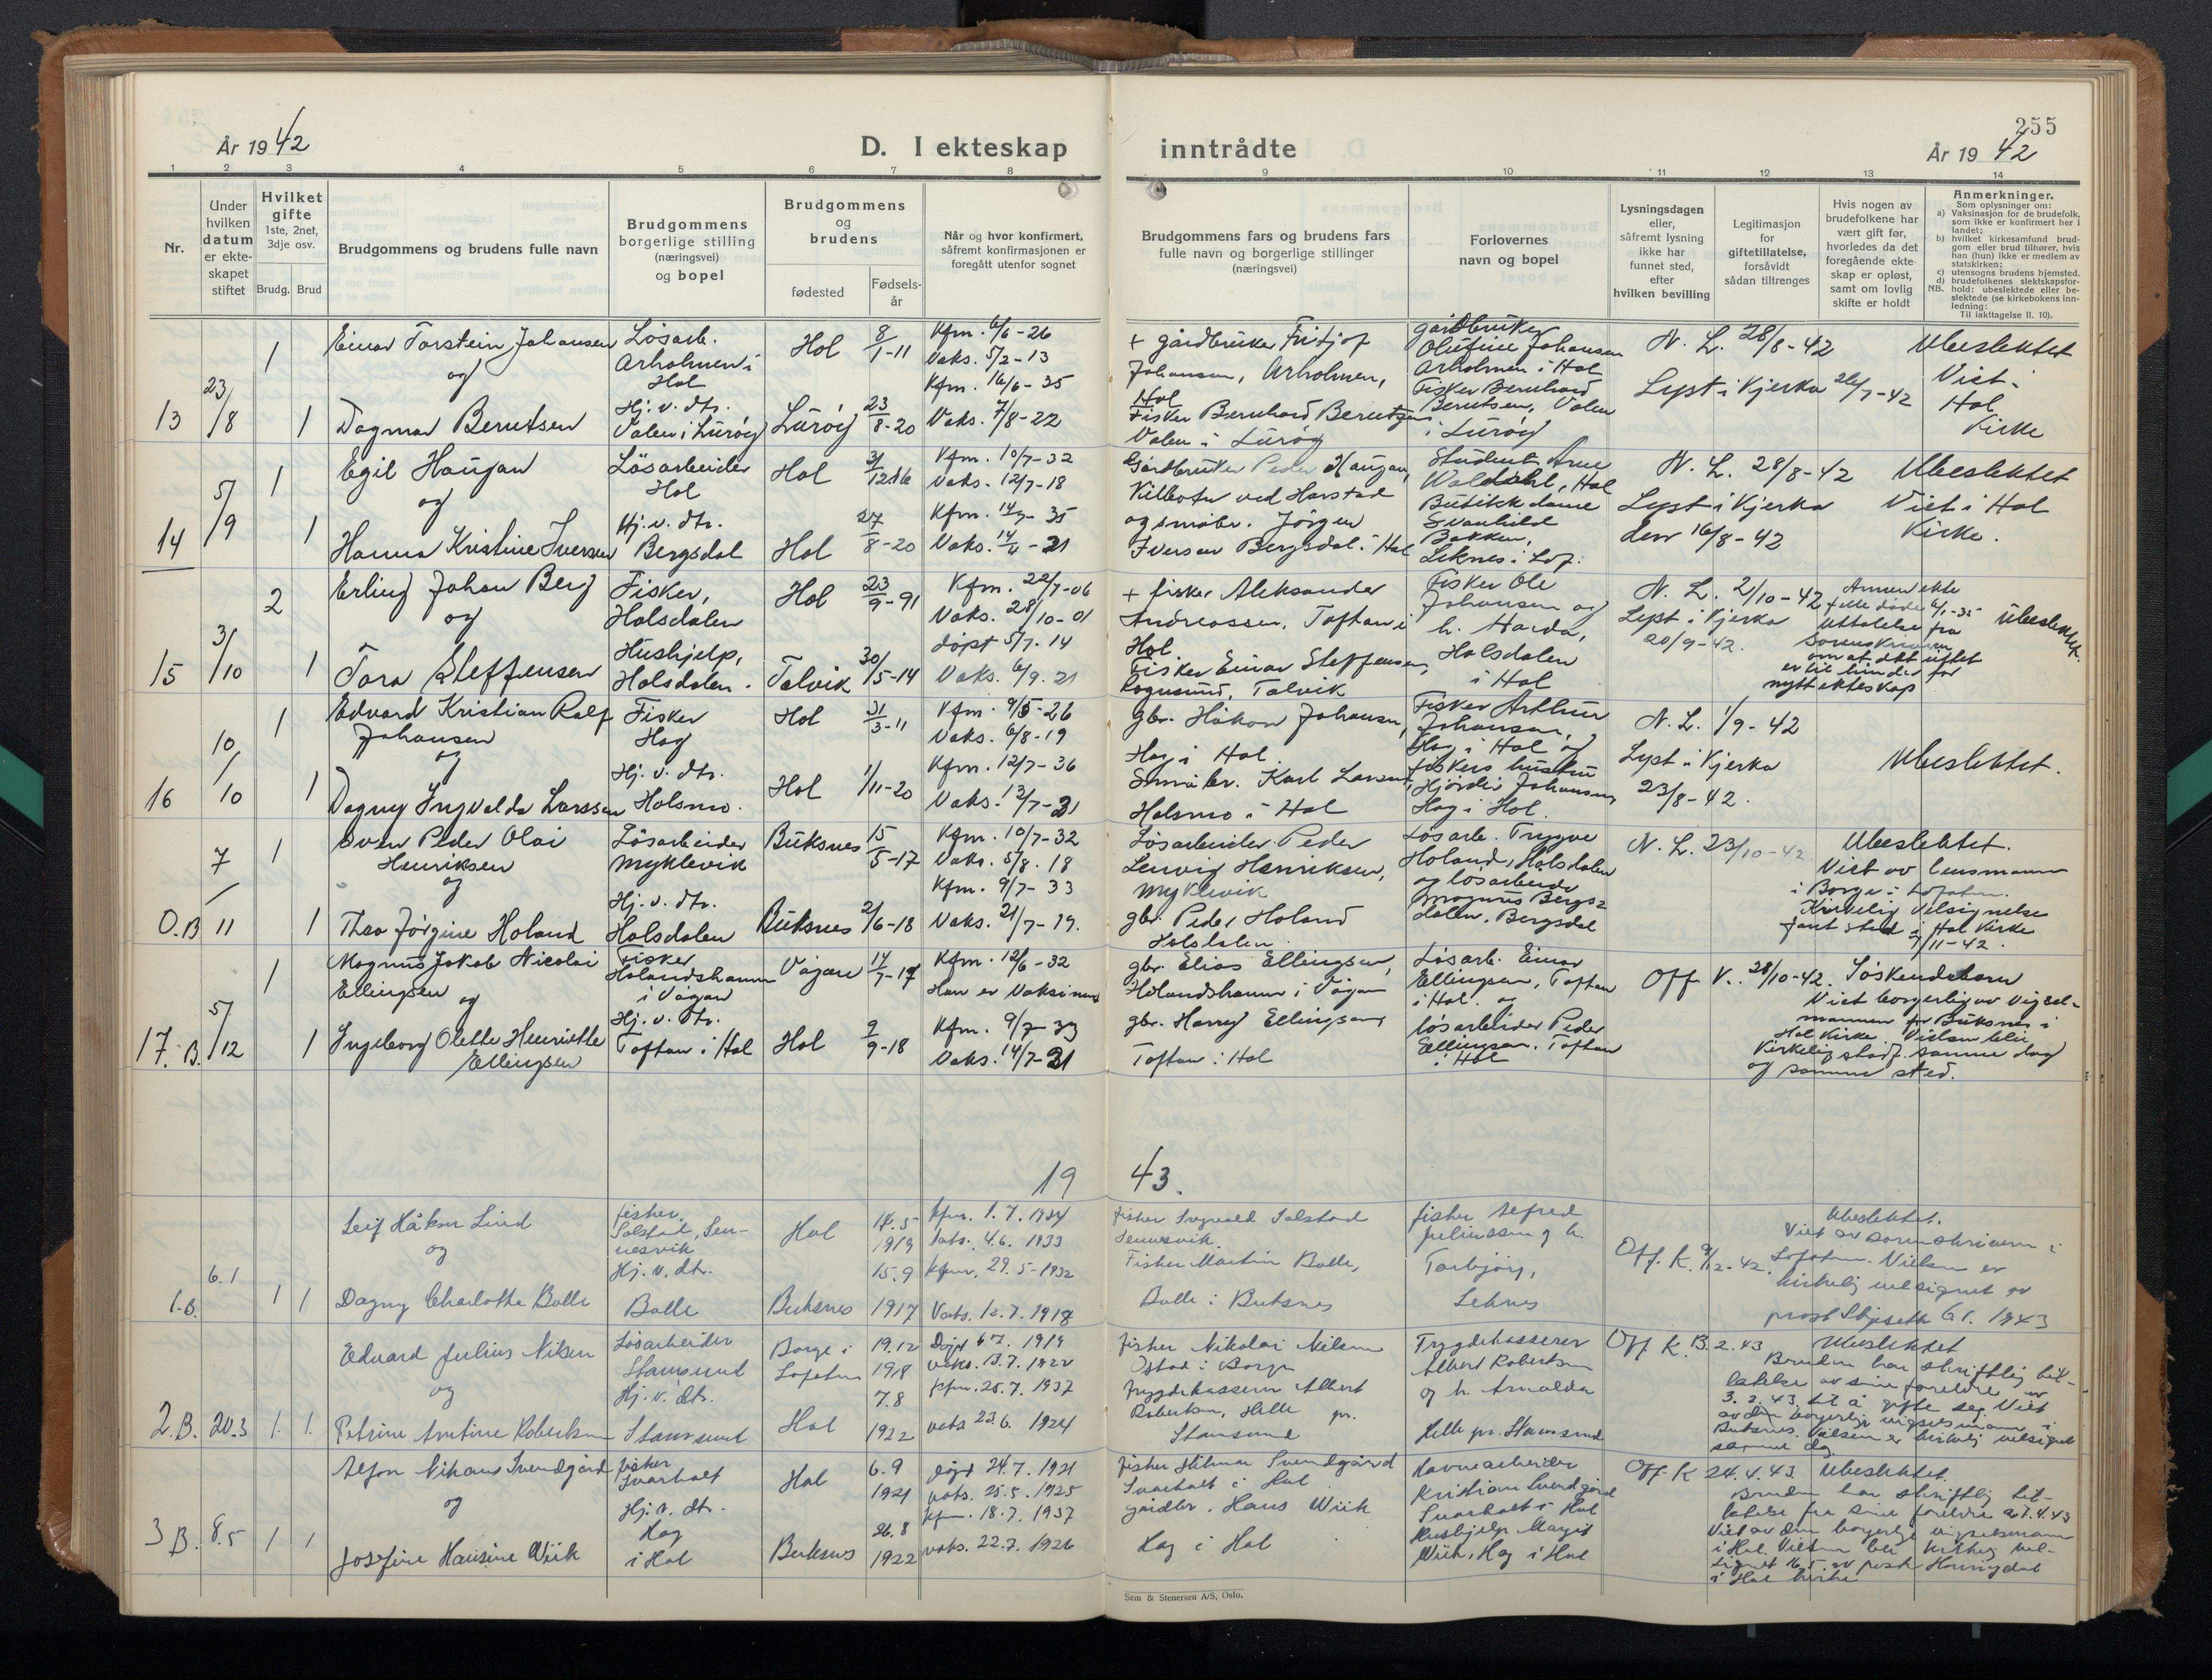 År 1942
D. I ekteskap inntrådte
255
År 1942
1 2 3 4 5 6 7 8 9 10 11 12 13 14
Nr.
Under hvilken datum er ekteskapet stiftet
Hvilket gifte 1ste, 2net, 3dje osv.
Brudg. Brud
Brudgommens og brudens fulle navn
Brudgommens borgerlige stilling (næringsvei) og bopel
Brudgommens og brudens
fødested
Fødsels-år
Når og hvor konfirmert, såfremt konfirmasjonen er foregått utenfor sognet
Brudgommens fars og brudens fars fulle navn og borgerlige stillinger (næringsvei)
Forlovernes navn og bopel
Lysningsdagen eller, såfremt lysning ikke har funnet sted, efter hvilken bevilling
Legitimasjon for giftetillatelse, forsåvidt sådan tiltrenges
Hvis nogen av brudefolkene har vært gift før, hvorledes da det foregående ekteskap er opløst, samt om lovlig skifte er holdt
Anmerkninger.
Som oplysninger om:
a) Vaksinasjon for de brudefolk, som ikke er konfirmert her i landet;
b) hvilket kirkesamfund brudgom eller brud tilhører, hvis han (hun) ikke er medlem av statskirken;
c) utensogns brudens hjemsted.
d) brudefolkenes slektskapsforhold: ubeslektede eller beslektede (se kirkebokens innledning:
NB.
Til iakttagelse II. 10).
13
23/8
1
Einar Torstein Johansen
Løsarb.
Arholmen i
Hol
Hol
8/1-11
Kfm. 6/6-26
Vaks. 5/2-13
+ gårdbruker Fritjof
Johansen, Arholmen,
Hol
gårdbruker
Olufine Johansen
Arholmen i Hol
N. L. 28/8-42
Lyst i Kjerka 26/7-42
Ubeslektet
Viet i
Hol
Kirke
og
1
Dagmar Berntsen
Hj. v. dtr.
Valen i Lurøy
Lurøy
23/8-20
Kfm. 16/6-35
Vaks. 7/8-22
Fisker Bernhard Berntsen
Valen i Lurøy
Fisker Bernhard
Berntsen, Valen
i Lurøy
14
5/9
1
Egil Haugan
Løsarbeider
Hol
Hol
Kfm. 10/7-32
Vaks. 12/7-18
Gårdbruker Peder Haugan,
Kilbotn ved Harstad
Student Arne
Waldahl, Hol
N. L. 28/8-42
Lyst i Kjerka
den 16/8-42
Ubeslektet
Viet i Hol
Kirke.
og
1
Hanna Kristine Iversen
Hj. v. dtr.
Bergsdal
Hol
27/8-20
Kfm. 14/7-35
Vaks. 14/4-21
og småbr. Jørgen
Iversen Bergsdal i Hol
Butikkdame
Svanhild
Bakken,
Leknes i Lof.
15
3/10
2
Erling Johan Berg
Fisker,
Holsdalen
Hol
23/9-91
Kfm. 22/7-06
Vaks. 28/10-01
+ fisker Aleksander
Andreassen, Toftan i
Hol.
Fisker Ole
Johansen og
h. Harda,
Holsdalen
i Hol
N. L. 2/10-42
Lyst i Kjerka
20/9-42.
Uttalelse fra
Sorenskriveren
om at det intet
er til hinder for
nytt ekteskap
Ubeslektet.
og
1
Tora Steffensen
Hushjelp,
Holsdalen.
Talvik
30/5-14
døpt 5/7.14
Vaks. 6/9.21
Fisker Einar Steffensen,
Rognsund, Talvik
16
10/10
1
Edvard Kristian Rolf
Johansen
Fisker
Hag
Hol
31/3-11
Kfm. 9/5-26
Vaks. 6/8-19
gbr. Håkon Johansen,
Hag i Hol.
Fisker Arthur
Johansen,
Hag i Hol og
fiskers hustru
Hjørdis Johansen,
Hag i Hol.
N. L. 1/9-42
Lyst i Kjerka
23/8-42.
Ubeslektet.
og
1
Dagny Ingvalda Larssen
Hj. v. dtr.
Holsmo.
Hol
1/11-20
Kfm. 12/7-36
Vaks. 13/7-21
Småbr. Karl Larssen,
Holsmo i Hol
O.B
7/11
1
Sven Peder Olai
Henriksen
Løsarbeider
Myklevik
Buksnes
15/5-17
Kfm. 10/7-32
Vaks. 5/8.18
Løsarbeider Peder
Lenvig Henriksen,
Myklevik
Løsarb. Trygve
Holand, Holsdalen
og løsarbeider
Magnus Bergs-
dalen. Bergsdal
N. L. 23/10-42
Ubeslektet.
Viet av lensmann
i Borge i Lofoten.
Kirkelig Velsignelse
fant sted i Hol Kirke
7/11-42.
og
1
Thea Jørgine Holand
Hj. v. dtr.
Holsdalen
Buksnes
2/6-18
Kfm. 9/7-33
Vaks. 21/7-19.
gbr. Peder Holand
Holsdalen
17.B.
5/12
1
Magnus Jakob Nicolai
Ellingsen
Fisker
Holandshamn
i Vågan
Vågan
14/7-17
Kfm. 12/6-32
Han er Vaksinert
gbr. Elias Ellingsen,
Holandshamn i Vågan
Løsarb. Einar
Ellingsen, Toftan
i Hol. og
løsarbeider Peder
Ellingsen. Toftan
i Hol
Off. V. 28/10-42.
Søskendebarn
Viet borgerlig av Vigsel-
mannen for Buksnes i
Hol Kirke. Vielsen blei
Kirkelig stadf. samme dag
og samme sted.
og
1
Ingeborg Olette Henriette
Ellingsen
Hj. v. dtr.
Toftan i Hol
Hol
9/9-18
Kfm. 9/7-33
Vaks. 14/7-21
gbr. Harry Ellingsen,
Toftan i Hol
1943.
1.B.
6.1
1
Leif Håkon Lind
fisker,
Solstad, Sen-
nesvik
Hol
14.5
1919
kfm. 1.7.1934
vaks. 4.6.1933
Fisker Ingvald Solstad
Sennesvik.
fisker Alfred
Juliussen og h.
Torbjørg,
Leknes
Off. K. 9/12-42.
Ubeslektet.
Viet av sorenskriveren i
Lofoten. Vielsen er
kirkelig velsignet av
prost 6.1.1943
og
1
Dagny Charlotte Balle
Hj. v. dtr.
Balle
Buksnes
15.9
1917
kfm. 29.5-1932
Vaks. 12.7.1918
Fisker Martin Balle,
Balle i Buksnes
2.B.
20.3
1.
Edvard Julius Nilsen
Løsarbeider
Stamsund
Borge i
Lofoten
19.12
1918
Døpt 6.7.1919
vaks. 13.7.1922
fisker Nikolai Nilsen
Østad i Borge
Trygdekasserer
Albert Robertsen
og h. Arnolda
Helle pr. Stamsund
Off. K. 13.2.43
Ubeslektet
Bruden har skriftlig til-
latelse av sine foreldre av
3.2.43. til å gifte seg. Viet
av den borgerlige vigselsmann i
Buksnes. Vielsen er kirkelig velsignet
samme dag.
og
1.
Petrine Antine Robertsen
Hj. v. dtr.
Stamsund
Hol
7.8
1922
kfm. 25.7.1937
vaks 23.6.1924
trygdekasserer Albert
Robertsen, Helle pr.
Stamsund
3 B.
8.5
1
Alfon Nikaus Svendgård
fisker
Svarholt
Hol
6.9
1921
døpt 24.7.1921
vaks. 25.5.1925
fisker Hilmar Svendgård
Svarholt i Hol
Havnearbeider
Kristian Svendgård
Svarholt i Hol
Hushjelp Margit
Wiik, Hag i Hol
Off. K 24.4.43.
Ubeslektet.
Bruden har skriftlig til-
latelse fra sine foreldre av 7.4.43
Viet av den borgerlige vigselsmann
i Hol. Vielsen ble kirkelig vel-
signet 16.5 av prest
i Hol kirke
og
1
Josefine Hansine Wiik
Hj. v. dtr.
Hag
i Hol
Buksnes
26.8
1922
kfm. 18.7.1937
vaks. 22.7.1926
gårdbr. Hans Wiik
Hag i Hol
Sem & Stenersen A/S, Oslo.